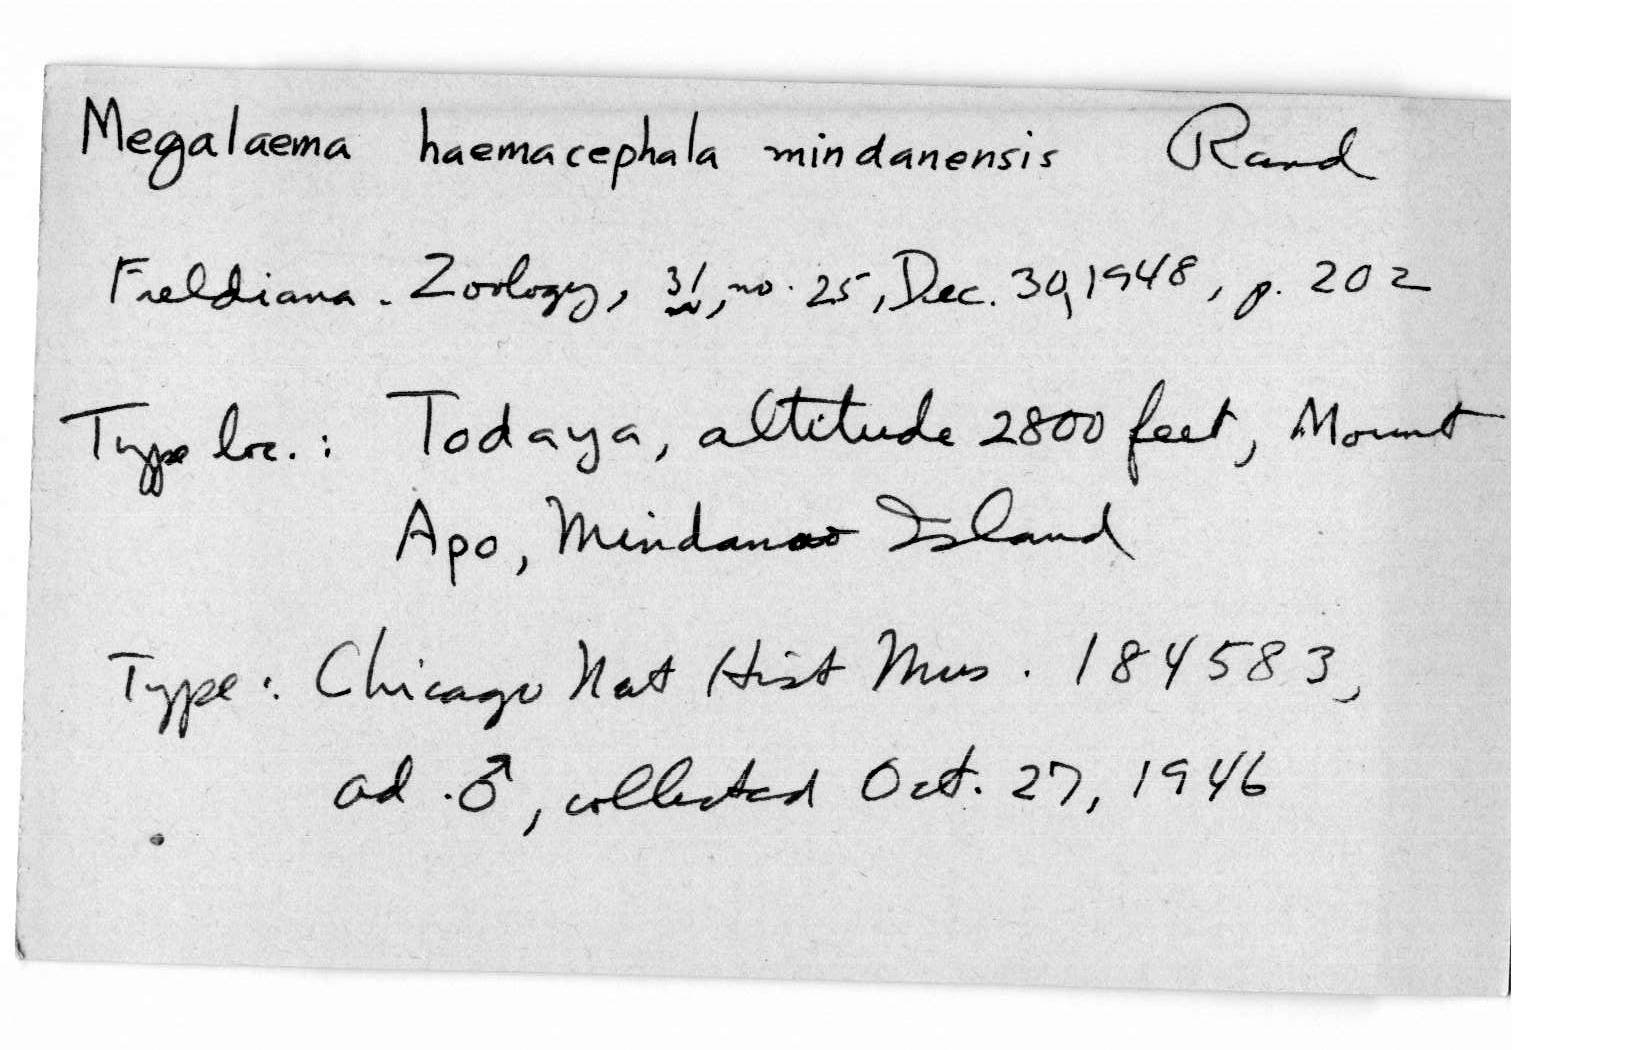 Megalaema haemacephala mindanensis Rand
Fieldiana. Zoology, 31, no. 25, Dec. 30, 1948, p. 202
Type loc.: Todaya, altitude 2800 feet, Mount
Apo, Mindanao Island
Type: Chicago Nat Hist Mus. 184583,
ad. ♂, collected Oct. 27, 1946